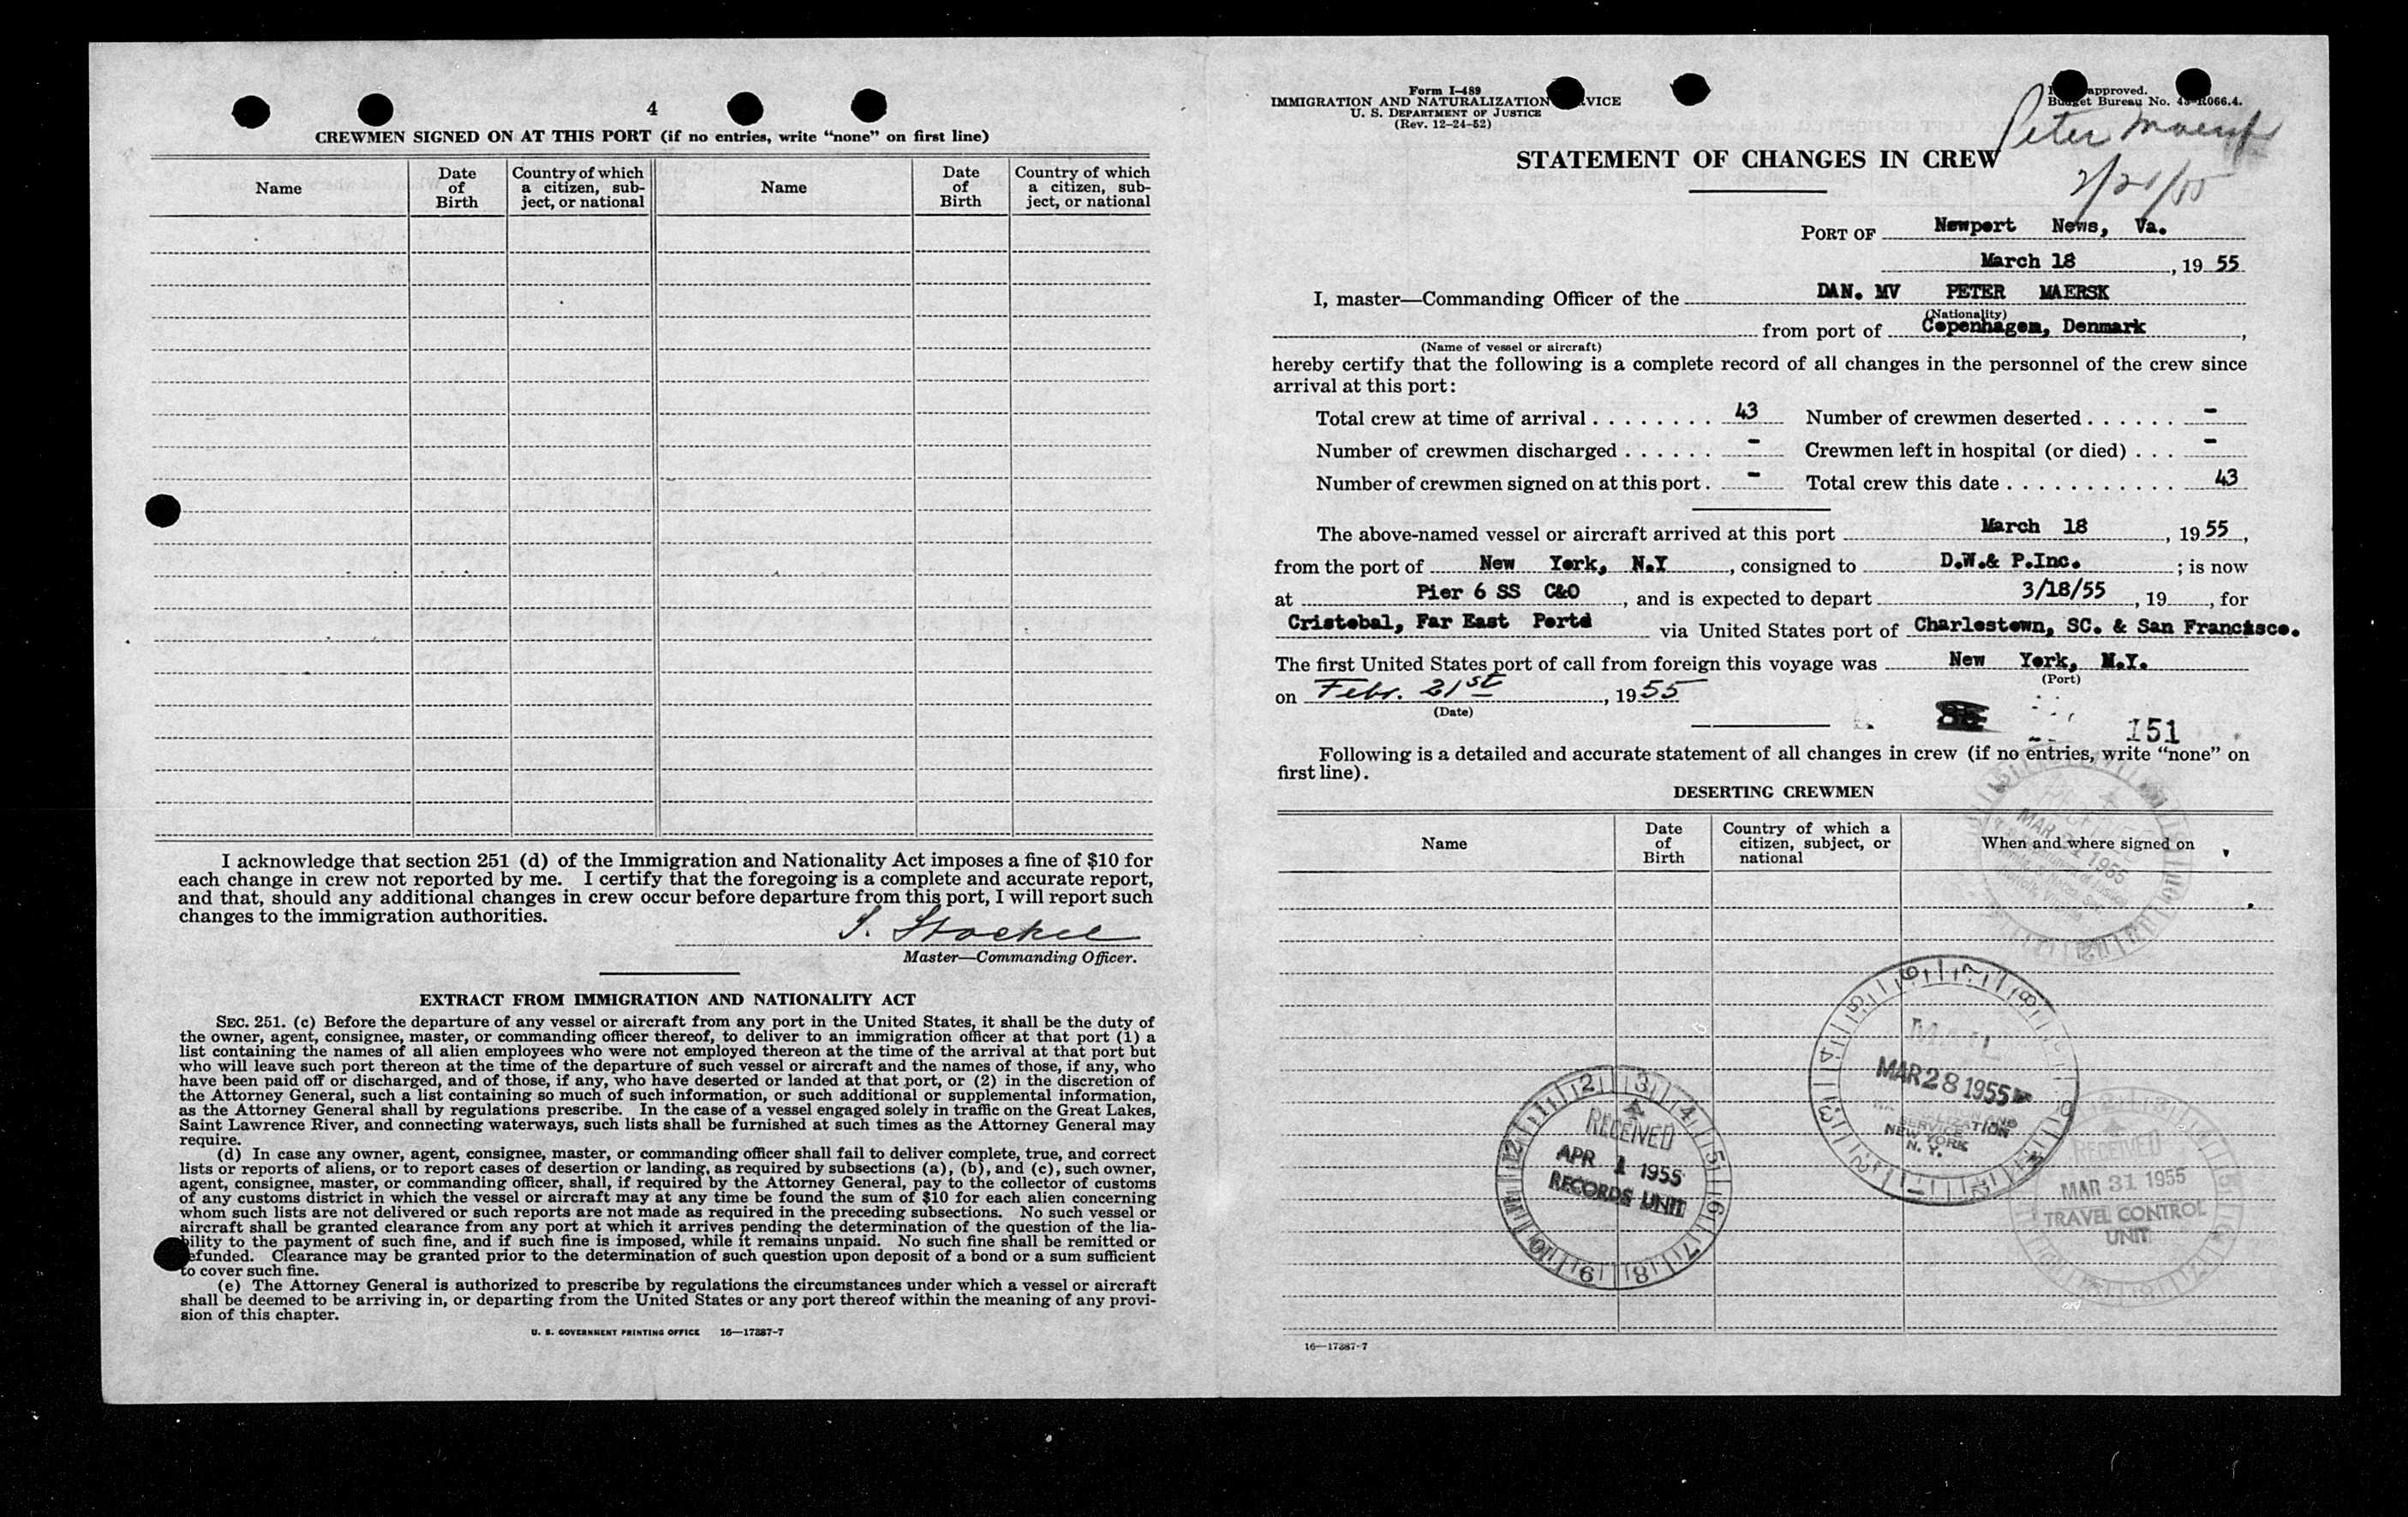 4
CREWMEN SIGNED ON AT THIS PORT (if no entries, write “none” on first line)
Name
Date of Birth
Country of which a citizen, sub-ject, or national
Name
Date of Birth
Country of which a citizen, sub-ject, or national
I acknowledge that section 251 (d) of the Immigration and Nationality Act imposes a fine of $10 for
each change in crew not reported by me. I certify that the foregoing is a complete and accurate report,
and that, should any additional changes in crew occur before departure from this port, I will report such
changes to the immigration authorities.
Master—Commanding Officer.
EXTRACT FROM IMMIGRATION AND NATIONALITY ACT
SEC. 251. (c) Before the departure of any vessel or aircraft from any port in the United States, it shall be the duty of
the owner, agent, consignee, master, or commanding officer thereof, to deliver to an immigration officer at that port (1) a
list containing the names of all alien employees who were not employed thereon at the time of the arrival at that port but
who will leave such port thereon at the time of the departure of such vessel or aircraft and the names of those, if any, who
have been paid off or discharged, and of those, if any, who have deserted or landed at that port, or (2) in the discretion of
the Attorney General, such a list containing so much of such information, or such additional or supplemental information,
as the Attorney General shall by regulations prescribe. In the case of a vessel engaged solely in traffic on the Great Lakes,
Saint Lawrence River, and connecting waterways, such lists shall be furnished at such times as the Attorney General may
require.
(d) In case any owner, agent, consignee, master, or commanding officer shall fail to deliver complete, true, and correct
lists or reports of aliens, or to report cases of desertion or landing, as required by subsections (a), (b), and (c), such owner,
agent, consignee, master, or commanding officer, shall, if required by the Attorney General, pay to the collector of customs
of any customs district in which the vessel or aircraft may at any time be found the sum of $10 for each alien concerning
whom such lists are not delivered or such reports are not made as required in the preceding subsections. No such vessel or
aircraft shall be granted clearance from any port at which it arrives pending the determination of the question of the lia-
bility to the payment of such fine, and if such fine is imposed, while it remains unpaid. No such fine shall be remitted or
efunded. Clearance may be granted prior to the determination of such question upon deposit of a bond or a sum sufficient
to cover such fine.
(e) The Attorney General is authorized to prescribe by regulations the circumstances under which a vessel or aircraft
shall be deemed to be arriving in, or departing from the United States or any port thereof within the meaning of any provi-
sion of this chapter.
U. S. GOVERNMENT PRINTING OFFICE 16—17387-7
Form I-489
IMMIGRATION AND NATURALIZATION VICE
U. S. DEPARTMENT OF JUSTICE
(Rev. 12-24-52)
approved.
Budget Bureau No. 43-R066.4.
Peter Maersk
2/21/55
STATEMENT OF CHANGES IN CREW
PORT OF Newport News, Va.
March 18, 19 55
I, master—Commanding Officer of the DAN. MV PETER MAERSK
(Nationality)
from port of Copenhagen, Denmark,
(Name of vessel or aircraft)
hereby certify that the following is a complete record of all changes in the personnel of the crew since
arrival at this port:
Total crew at time of arrival . . . . . . . . 43 Number of crewmen deserted . . . . . . -
Number of crewmen discharged . . . . . . - Crewmen left in hospital (or died) . . . -
Number of crewmen signed on at this port . - Total crew this date . . . . . . . . . . . 43
The above-named vessel or aircraft arrived at this port March 18, 19 55,
from the port of New York, N.Y, consigned to D.W.& P.Inc.; is now
at Pier 6 SS C&O, and is expected to depart 3/18/55, 19, for
Cristobal, Far East Ports via United States port of Charlestown, SC. & San Francisco.
The first United States port of call from foreign this voyage was New York, N.Y.
(Port)
on Febr. 21st, 19 55
(Date)
151
Following is a detailed and accurate statement of all changes in crew (if no entries, write “none” on
first line).
DESERTING CREWMEN
Name
Date of Birth
Country of which a citizen, subject, or national
When and where signed on
MAR 1955
MAIL
MAR 28 1955
NEW YORK
N. Y.
RECEIVED
APR 1 1955
RECORDS UNIT
RECEIVED
MAR 31 1955
TRAVEL CONTROL
UNIT
16—17387-7